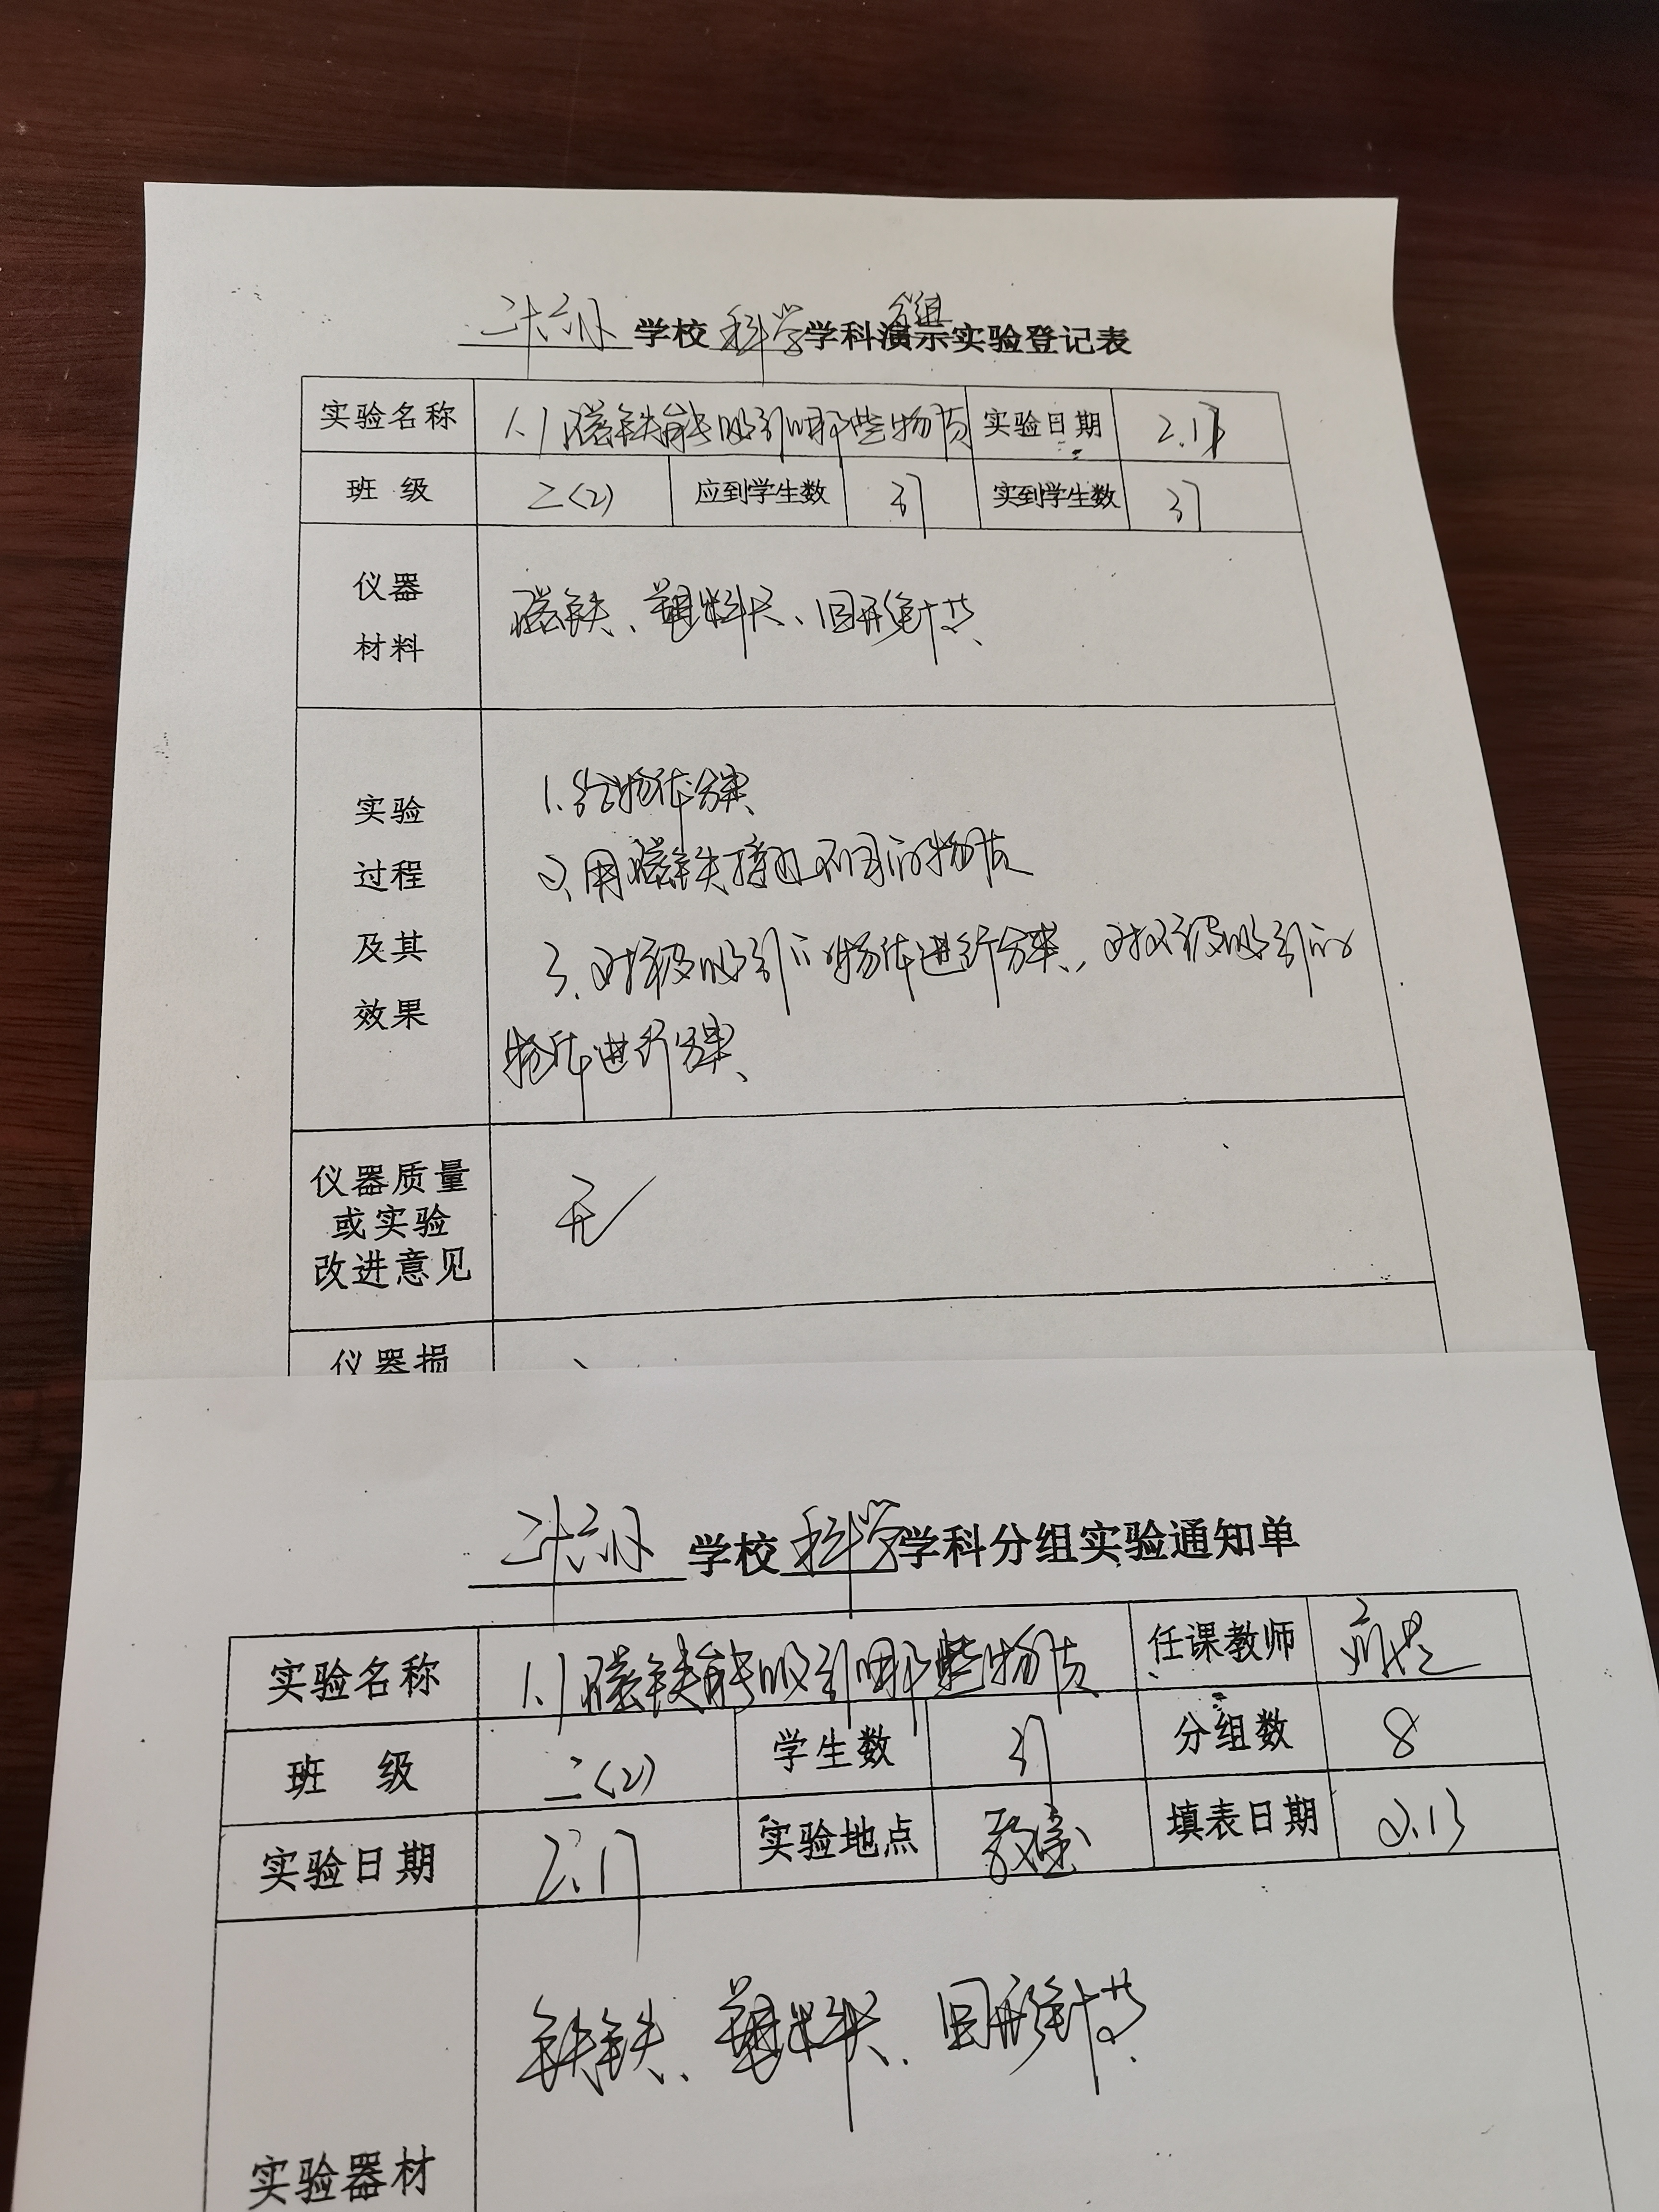 二十六小 学校 科学 学科演示实验登记表
分组
实验名称 1.1磁铁能吸引哪些物质 实验日期 2.17
班 级 二(2) 应到学生数 37 实到学生数 37
仪器
材料
磁铁、塑料尺、回形针等、
实验
过程
及其
效果
1.给物体分类
2.用磁铁接近不同的物质
3.对被吸引的物体进行分类,对不被吸引的
物体进行分类、
仪器质量
或实验
改进意见
无
仪器损
二十六小 学校 科学 学科分组实验通知单
实验名称 1.1磁铁能吸引哪些物质 任课教师
班 级 二(2) 学生数 37 分组数 8
实验日期 2.17 实验地点 教室 填表日期 2.13
铁铁、塑料尺、回形针等、
实验器材